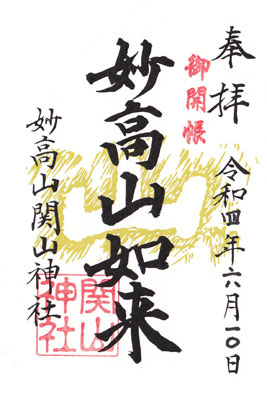 奉拝
御開帳
令和四年六月一〇日
妙高山如来
妙高山関山神社
関山神社